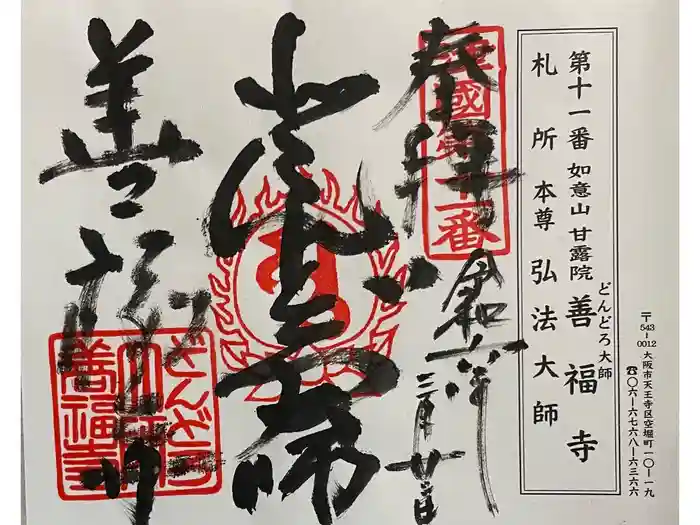 〒543-0012 大阪市天王寺区空堀町一〇-一九
☎〇六-六七六八-六三六六
第十一番 如意山 甘露院 善福寺
どんどろ大師
札所 本尊 弘法大師
奉拝
令和六年
三月廿日
弘法大師
善福寺
どんどろ
大師
善福寺